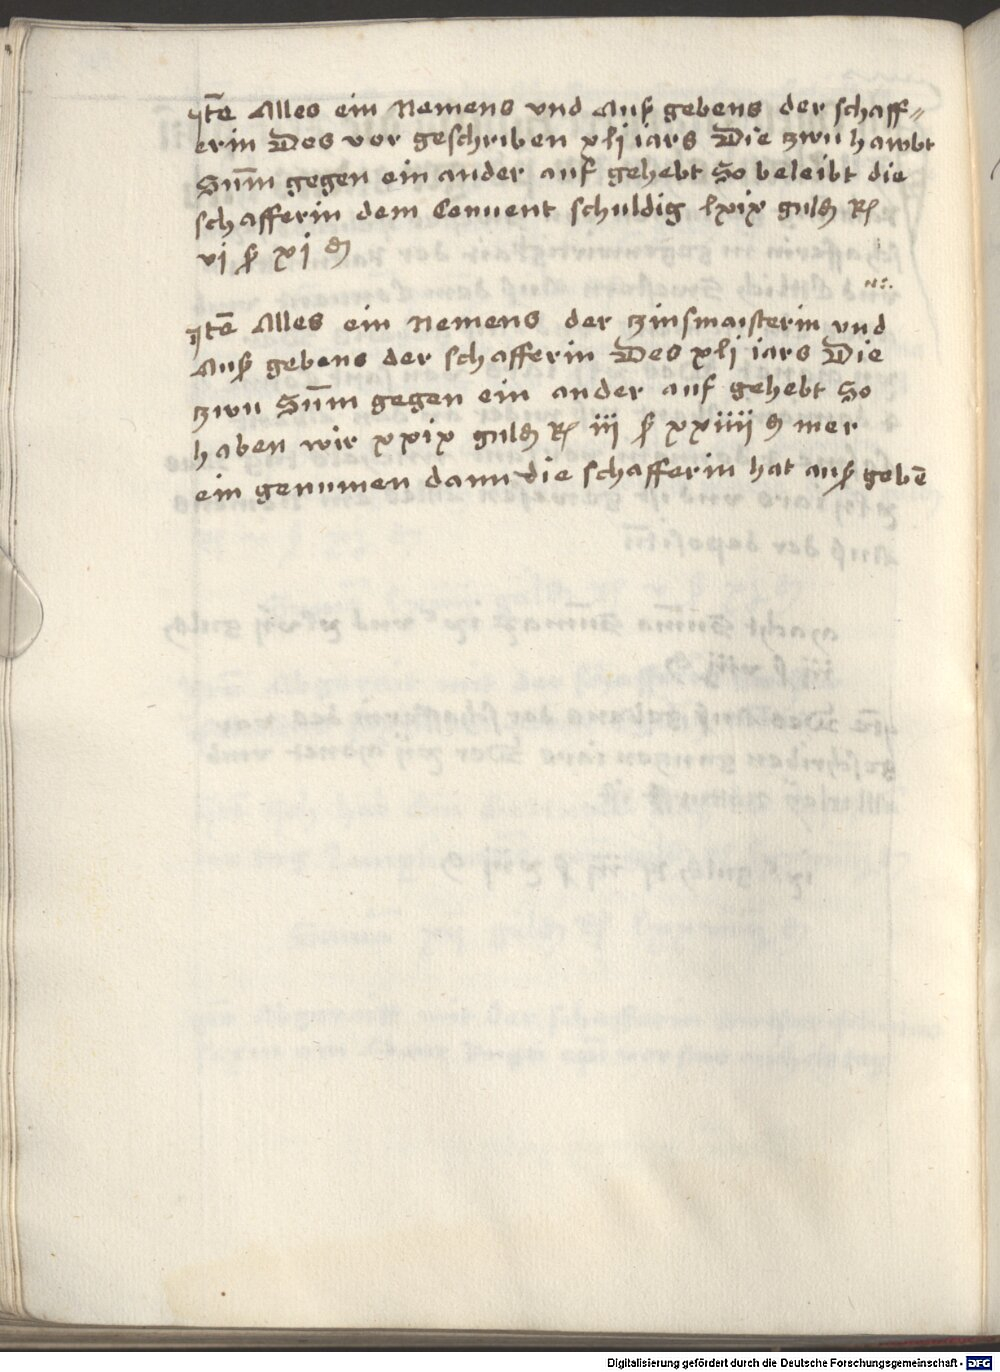 Jtē Alles ein Nemens vnd Auß gebens der schaff⸗
erin Des vor geschriben xlj iars Die zwu hawbt
Sūm gegen ein ander auf gehebt So beleibt die
schafferin dem Conuent schuldig lxix guld R
vj ß xj d
Jtē Alles ein Nemens der zinsmaisterin vnd
Auß gebens der schafferin Des xlj iars Die
zwu Sūm gegen ein ander auf gehebt So
haben wir xxix guld R iij ß xxiiij d mer
ein genumen dann die schafferin hat auß gebē
Digitalisierung gefördert durch die Deutsche Forschungsgemeinschaft - DFG